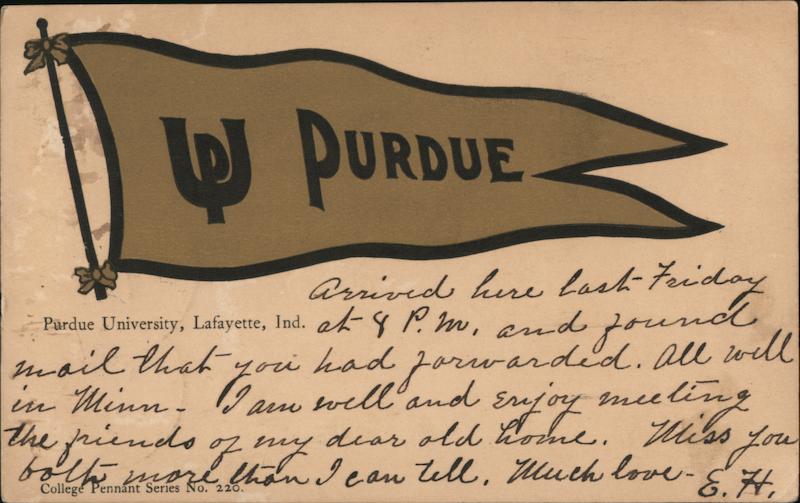 UP PURDUE
Arrived here last Friday
Purdue University, Lafayette, Ind. at 8 P.M. and found
mail that you had forwarded. All well
in Minn - I am well and enjoy meeting
the friends of my dear old home. Miss you
both more than I can tell. Much love - E. H.
College Pennant Series No. 220.